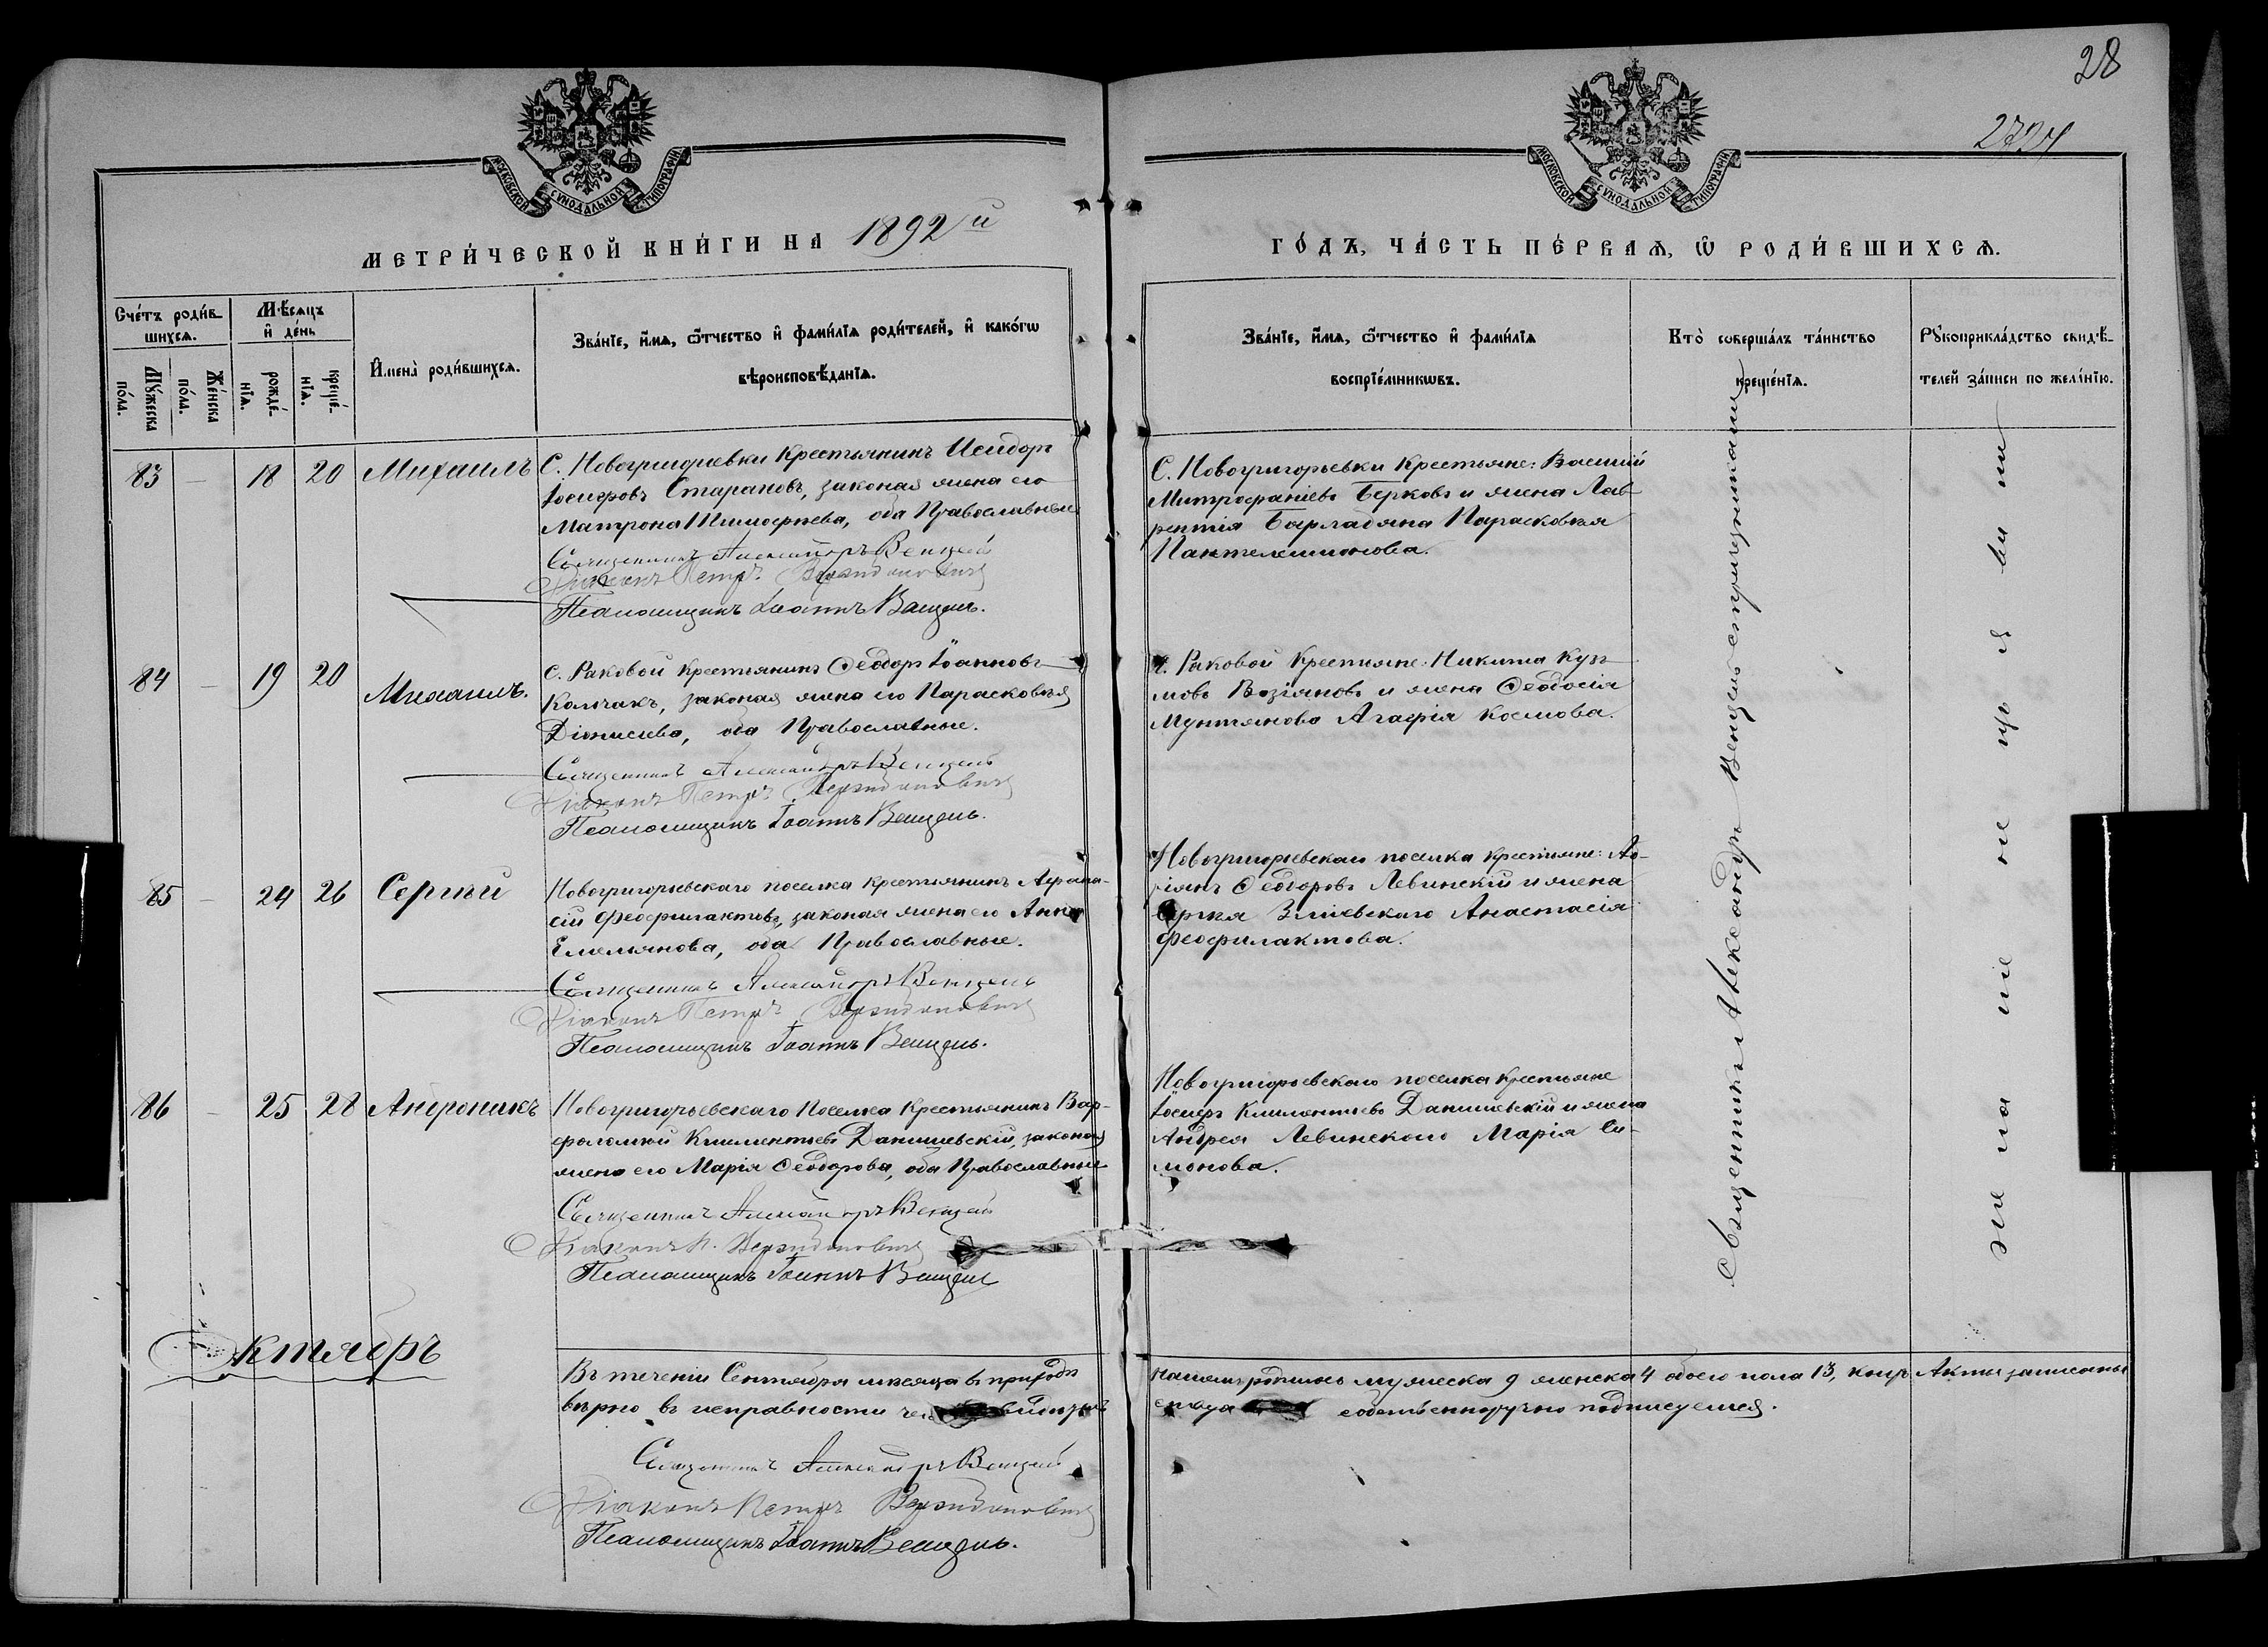 28
2724
МОСКОВСКОЙ СѴНОДАЛЬНОЙ ТИПОГРАФІИ
МОСКОВСКОЙ СѴНОДАЛЬНОЙ ТИПОГРАФІИ
МЕТРИ́ЧЕСКОЙ КНИ́ГИ НА 1892й
ГО́ДЪ, ЧА́СТЬ ПЕ́РВАѦ, Ѡ҆ РОДИ́ВШИХСѦ.
Сче́тъ роди́в-
шихсѧ.
Мꙋ́жеска по́ла.
Же́нска по́ла.
Мѣ́сѧцъ
и҆ де́нь
рожде́-
нїѧ.
креще́-
нїѧ.
И҆мена̀ роди́вшихсѧ.
Зва́нїе, и҆́мѧ, ѻ҆́тчество и҆ фами́лїѧ роди́телей, и҆ како́гѡ
вѣроисповѣ́данїѧ.
Зва́нїе, и҆́мѧ, ѻ҆́тчество и҆ фами́лїѧ
воспрїе́мникѡвъ.
Кто̀ соверша́лъ та́инство
креще́нїѧ.
Рꙋкоприкла́дство свидѣ́-
телей за́писи по жела́нїю.
83 — 18 20 Михаилъ
С. Новогригорьевки Крестьянинъ Исидоръ
Іосифовъ Старановъ, законая жена его
Матрона Тимофѣева, оба Православные
Священникъ Александръ Венцель
Діаконъ Петръ
Псаломщикъ Іоаннъ Венцель.
С. Новогригорьевки Крестьяне: Василій
Митрофаніевъ Берковъ и жена Лав-
рентія Барладяна Парасковія
Пантелеимонова.
84 — 19 20 Михаилъ.
С. Раковой Крестьянинъ Ѳеодоръ Іоанновъ
Колчакъ, законая жена его Парасковія
Діонисіева, оба Православные.
Священникъ Александръ Венцель
Діаконъ Петръ
Псаломщикъ Іоаннъ Венцель.
С. Раковой Крестьяне: Никита Кузь-
мовъ Возіяновъ и жена Ѳеодосія
Мунтянова Агафія Космова.
85 — 24 26 Сергѣй
Новогригорьевскаго поселка крестьянинъ Афана-
сій Феофилактовъ, законая жена его Анна
Емельянова, оба Православные.
Священникъ Александръ Венцель
Діаконъ Петръ
Псаломщикъ Іоаннъ Венцель.
Новогригорьевскаго поселка крестьяне: Ад-
ріянъ Ѳеодоровъ Левинскій и жена
Сергія Зміевскаго Анастасія
Феофилактова.
86 — 25 28 Андроникъ
Новогригорьевскаго Поселка Крестьянинъ Вар-
фоломей Климентіевъ Данишевскій, законая
жена его Марія Ѳеодорова, оба Православные
Священникъ Александръ Венцель
Діаконъ П.
Псаломщикъ Іоаннъ Венцель
Новогригорьевскаго поселка крестьяне
Іосифъ Климентьевъ Данишевскій и жена
Андрея Левинскаго Марія Си-
монова.
Священникъ Александръ Венцель
Октябрь
Въ теченіи Сентября мѣсяца въ приходѣ
нашемъ родилось мужеска 9 женска 4 обоего пола 13, Акты записаны
вѣрно въ исправности
собственноручно подписуемся.
Священникъ Александръ Венцель
Діаконъ Петръ
Псаломщикъ Іоаннъ Венцель.